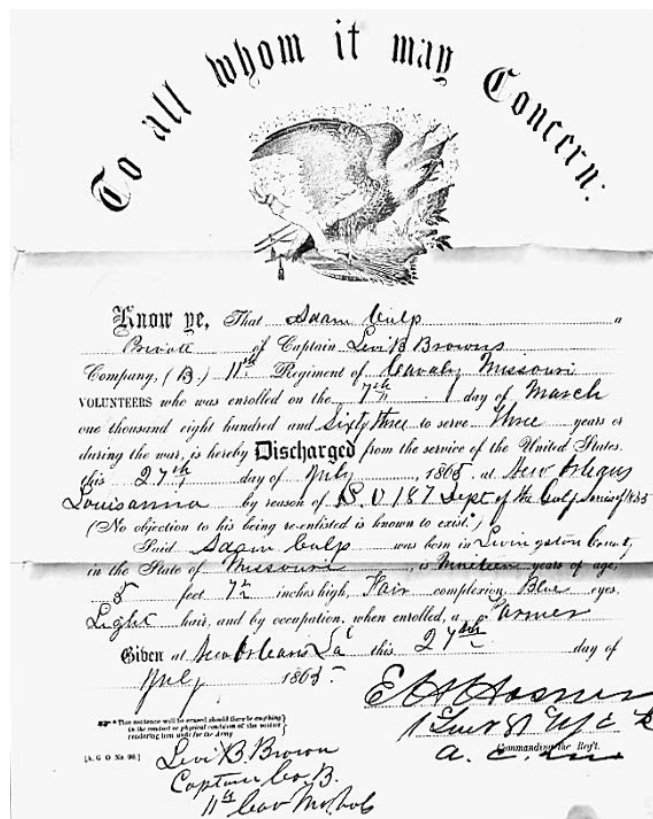 To all whom it may Concern:
Know ye, That Adam Culp a
Private of Captain Levi B Browns
Company, (B.) 11th Regiment of Cavalry Missouri
VOLUNTEERS who was enrolled on the 7th day of March
one thousand eight hundred and Sixty three to serve three years or
during the war, is hereby Discharged from the service of the United States.
this 27th day of July, 1865, at New Orleans
Louisianna by reason of S.O 187 Dept of the Gulf Series 1865
(No objection to his being re-enlisted is known to exist.*)
Said Adam Culp was born in Livingston County
in the State of Missouri, is Nineteen years of age,
5 feet 7½ inches high, Fair complexion, Blue eyes,
Light hair, and by occupation, when enrolled, a Farmer
Given at New Orleans La this 27th day of
July 1865
* This sentence will be erased should there be anything
in the conduct or physical condition of the soldier
rendering him unfit for the Army
[A. G. O No 99.]
Commanding the Reg't.
Levi B. Brown
Captain Co. B.
11th Cav Mo Vols